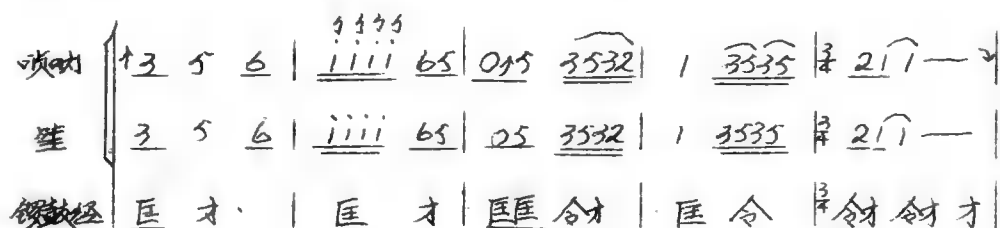 唢呐 3 5 6 | i i i i 65 | 05 3532 | 1 3535 | 3/4 2 1 1 — |
笙 3 5 6 | i i i i 65 | 05 3532 | 1 3535 | 3/4 2 1 1 — |
锣鼓经 匡 才· | 匡 才 | 匡匡 令才 | 匡 令 | 3/4 令才 令才 才 |